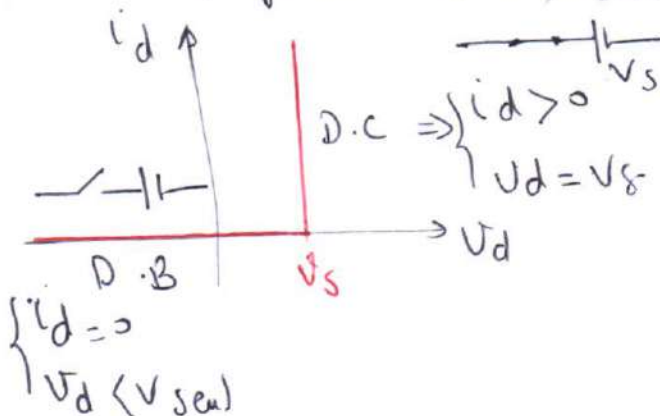 id
Vs
D.C ⇒ { id > 0
Vd = Vs
Vd
Vs
D.B
{ id = 0
Vd < V seuil